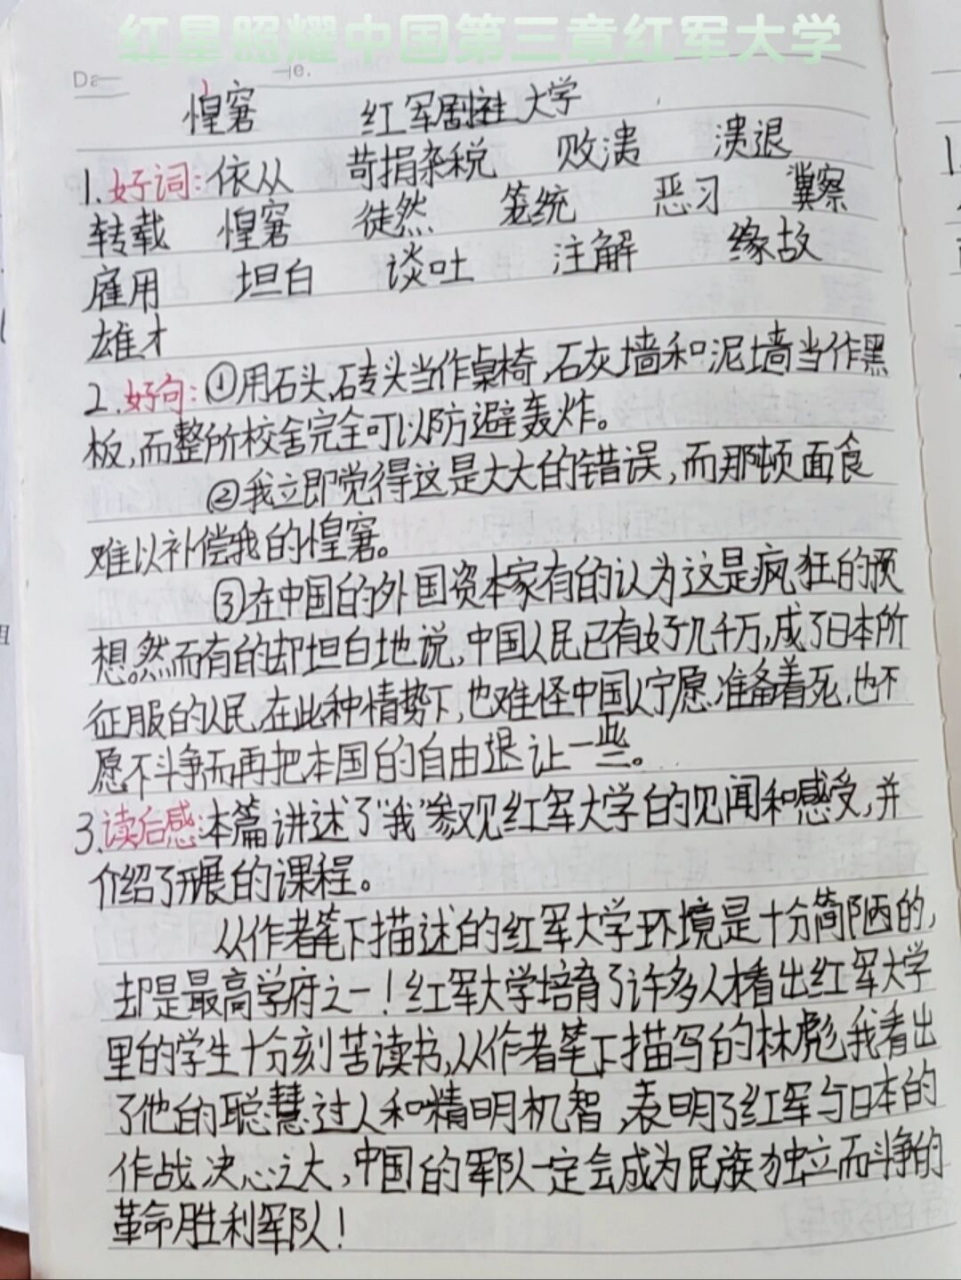 红星照耀中国第三章红军大学
惶窘 红军剧社 大学
1.好词:依从 苛捐杂税 败溃 溃退
转载 惶窘 徒然 笼统 恶习 冀察
雇用 坦白 谈吐 注解 缘故
雄才
2.好句:①用石头砖头当作桌椅,石灰墙和泥墙当作黑
板,而整所校舍完全可以防避轰炸。
②我立即觉得这是大大的错误,而那顿面食
难以补偿我的惶窘。
③在中国的外国资本家有的认为这是疯狂的预
想。然而有的却坦白地说,中国人民已有好几千万,成了日本所
征服的人民,在此种情势下,也难怪中国人宁愿准备着死,也不
愿不斗争而再把本国的自由退让一些。
3.读后感:本篇讲述了“我”参观红军大学的见闻和感受,并
介绍了开展的课程。
从作者笔下描述的红军大学环境是十分简陋的,
却是最高学府之一!红军大学培育了许多人才看出红军大学
里的学生十分刻苦读书,从作者笔下描写的林彪,我看出
了他的聪慧过人和精明机智,表明了红军与日本的
作战决心之大,中国的军队一定会成为民族独立而斗争的
革命胜利军队!